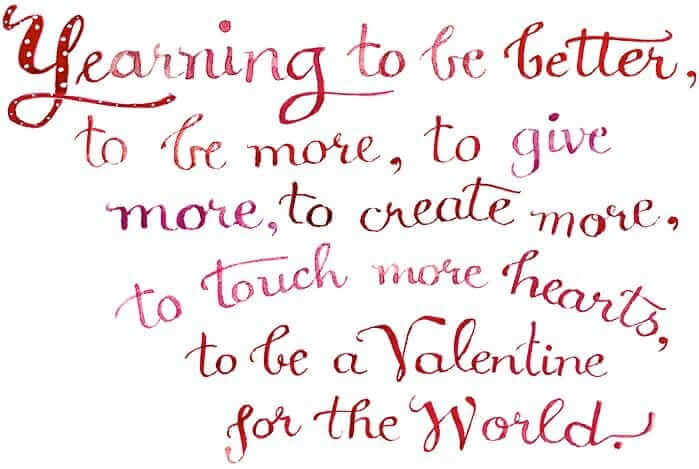 Yearning to be better,
to be more, to give
more, to create more,
to touch more hearts,
to be a Valentine
for the World.